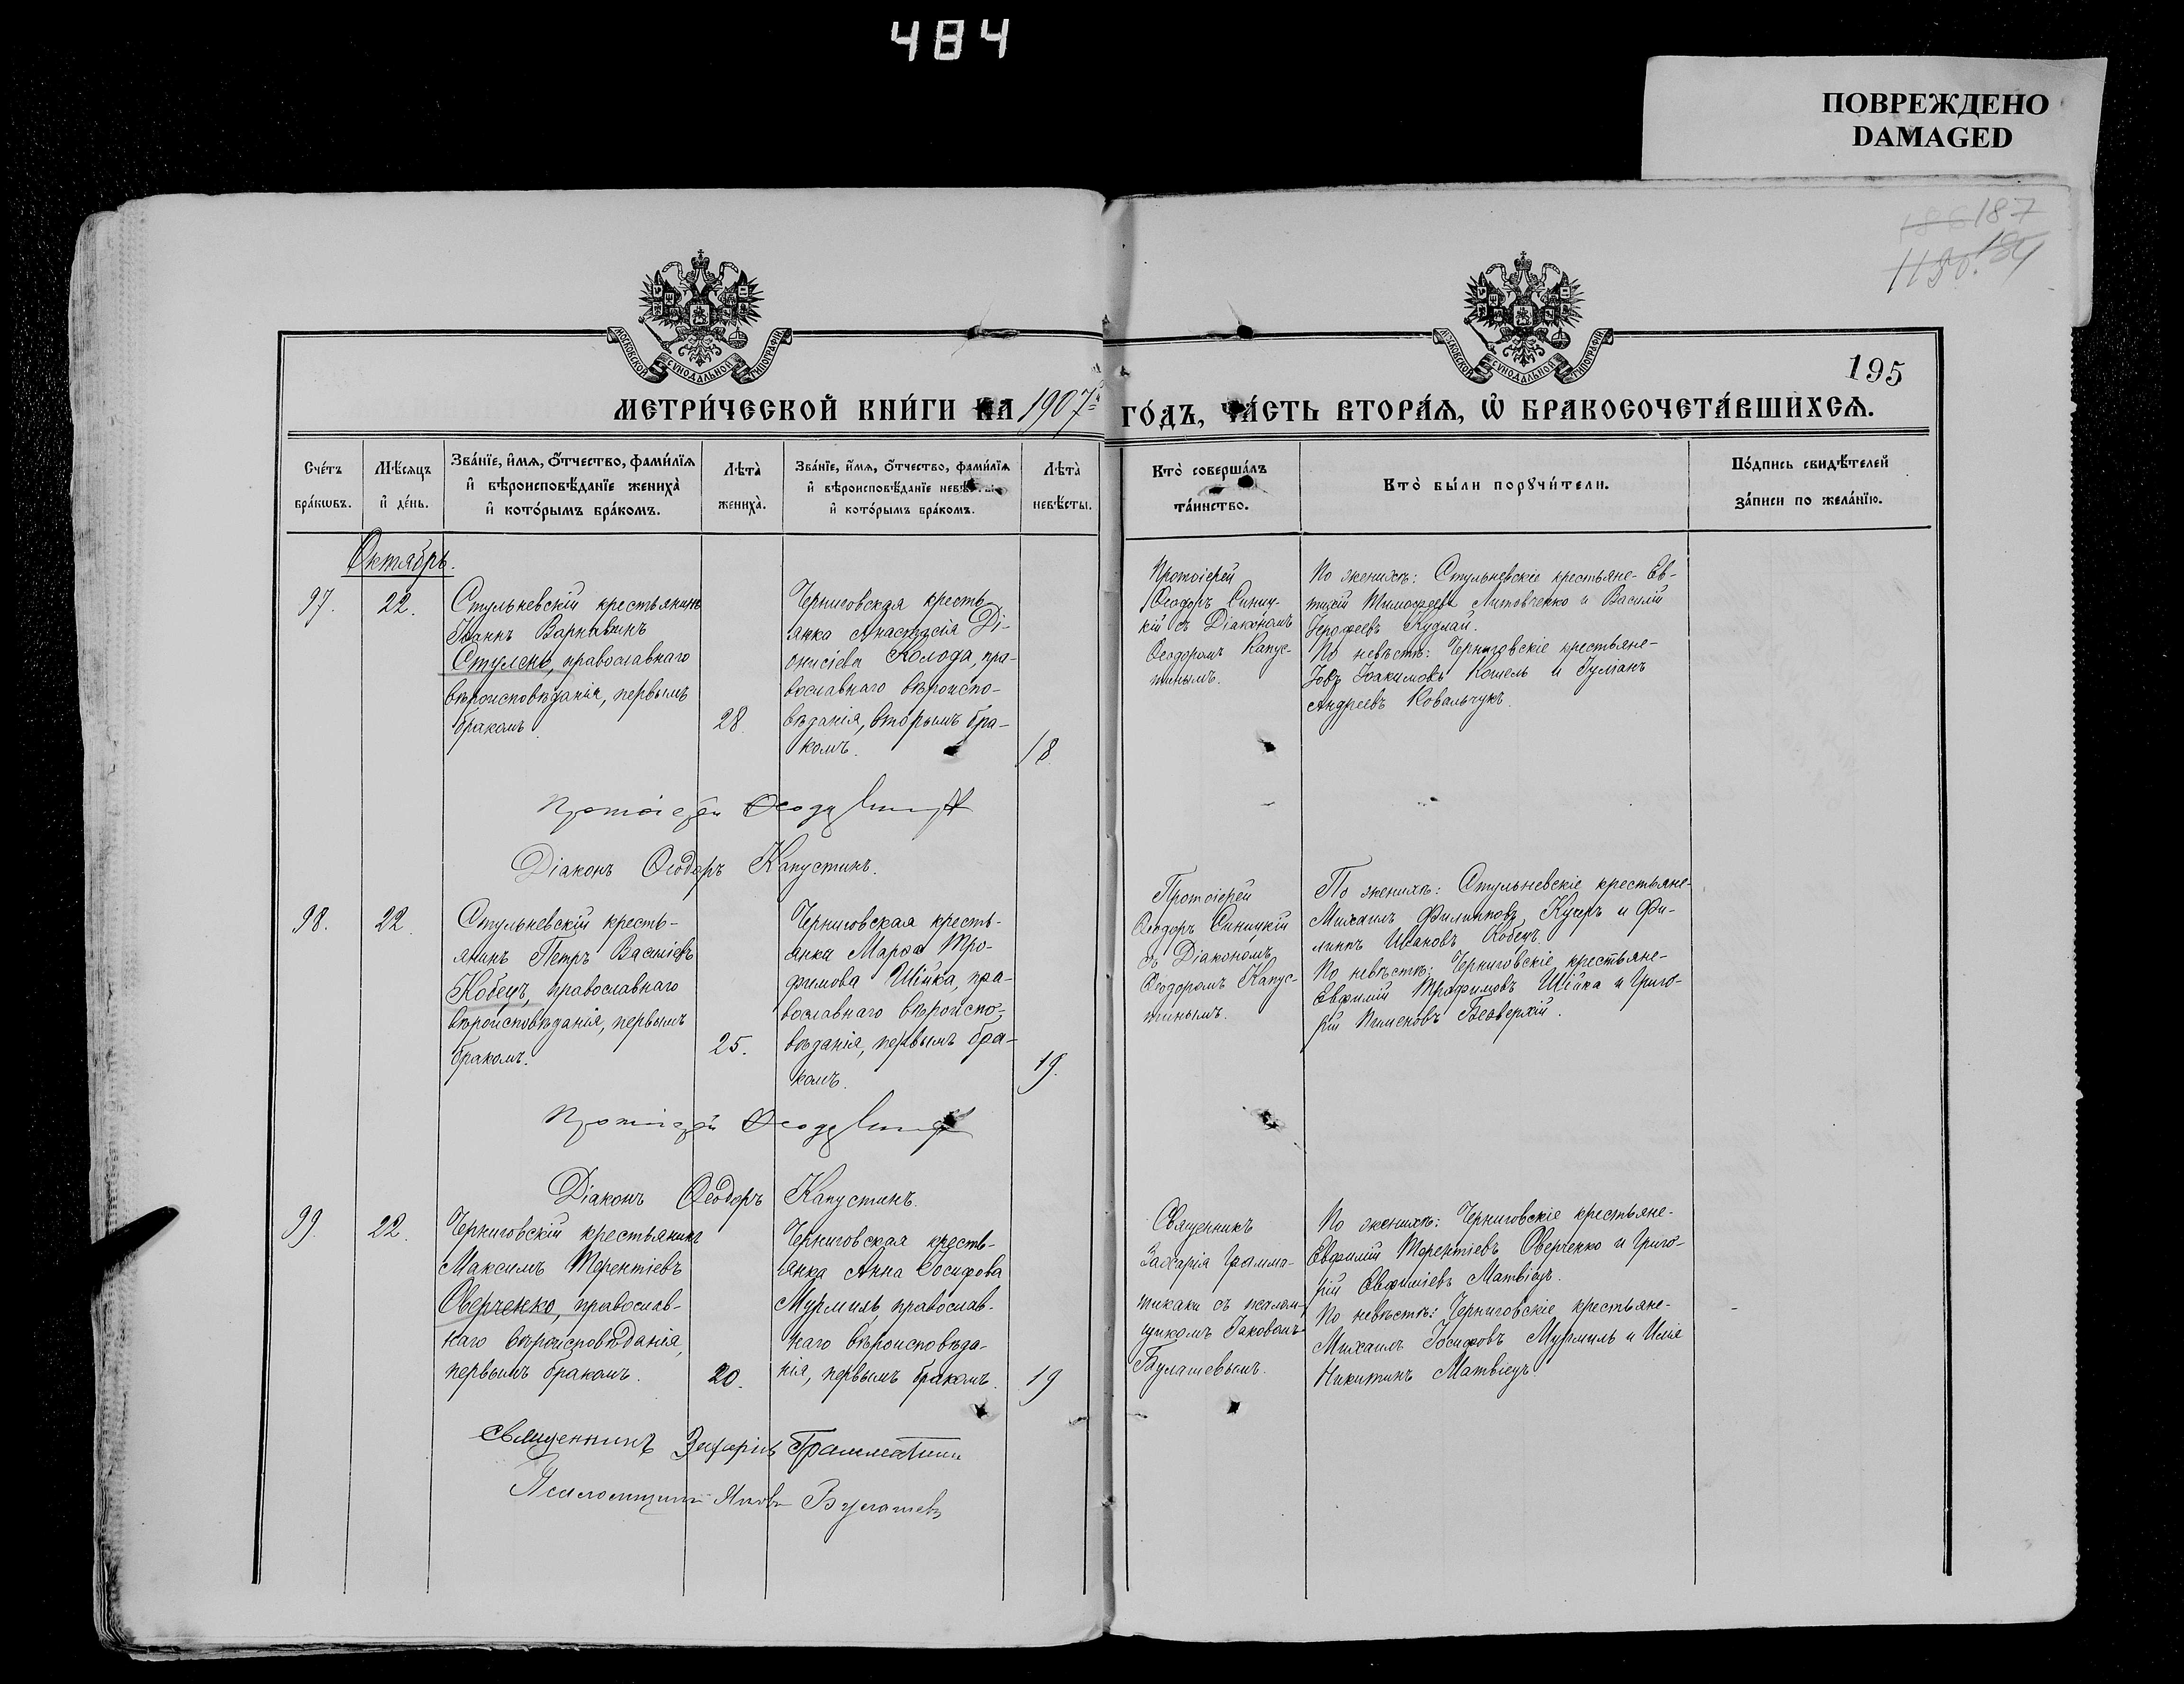 484
ПОВРЕЖДЕНО
DAMAGED
187
195
МОСКОВСКОЙ СѴНОДАЛЬНОЙ ТИПОГРАФІИ
МОСКОВСКОЙ СѴНОДАЛЬНОЙ ТИПОГРАФІИ
МЕТРИ́ЧЕСКОЙ КНИ́ГИ НА 1907й ГО́ДЪ, ЧА́СТЬ ВТОРА́Я, Ѡ БРАКОСОЧЕТА́ВШИХСЯ.
Сче́тъ
бра́кѡвъ.
Мѣ́сяцъ
и҆ де́нь.
Зва́нїе, и҆́мѧ, ѻ҆́тчество, фамилі́ѧ
и҆ вѣроисповѣ́данїе жениха̀
и҆ кото́рымъ бра́комъ.
Лѣта̀
жениха̀.
Зва́нїе, и҆́мѧ, ѻ҆́тчество, фами́лїѧ
и҆ вѣроисповѣ́данїе невѣ́сты
и҆ кото́рымъ бра́комъ.
Лѣта̀
невѣ́сты.
Кто̀ соверша́лъ
та́инство.
Кто̀ бы́ли порꙋчи́тели.
По́дпись свидѣ́телей
за́писи по жела́нїю.
Октябрь.
97.
22.
Стульневскій крестьянинъ
Іоаннъ Варнавинъ
Стулень, православнаго
вѣроисповѣданія, первымъ
бракомъ.
28.
Черниговская кресть-
янка Анастасія Ді-
онисіева Колода, пра-
вославнаго вѣроиспо-
вѣданія, вторымъ бра-
комъ.
18
Протоіерей
Ѳеодоръ Синиц-
кій съ Діакономъ
Ѳеодоромъ Капус-
тинымъ.
По женихѣ: Стульневскіе крестьяне- Ев-
тихій Тимофеевъ Литовченко и Василій
Іерофеевъ Кудлай.
По невѣстѣ: Черниговскіе крестьяне-
Іовъ Іоакимовъ Кошель и Іуліанъ
Андреевъ Ковальчукъ.
Протоіерей Ѳеодоръ Синицкій
Діаконъ Ѳеодоръ Капустинъ.
98.
22.
Стульневскій кресть-
янинъ Петръ Василіевъ
Кобецъ, православнаго
вѣроисповѣданія, первымъ
бракомъ.
25.
Черниговская кресть-
янка Марѳа Тро-
фимова Шійка, пра-
вославнаго вѣроиспо-
вѣданія, первымъ бра-
комъ.
19.
Протоіерей
Ѳеодоръ Синицкій
съ Діакономъ
Ѳеодоромъ Капус-
тинымъ.
По женихѣ: Стульневскіе крестьяне-
Михаилъ Филипповъ Кучеръ и Фи-
липпъ Ивановъ Кобецъ.
По невѣстѣ: Черниговскіе крестьяне-
Евфимій Трофимовъ Шійка и Григо-
рій Пименовъ Безверхій.
Протоіерей Ѳеодоръ Синицкій
Діаконъ Ѳеодоръ Капустинъ.
99.
22.
Черниговскій крестьянинъ
Максимъ Терентіевъ
Оверченко, православ-
наго вѣроисповѣданія,
первымъ бракомъ.
20.
Черниговская кресть-
янка Анна Іосифова
Мурмиль, православ-
наго вѣроисповѣда-
нія, первымъ бракомъ.
19
Священникъ
Захарія Грамма-
тикаки съ псалом-
щикомъ Іаковомъ
Булашевымъ.
По женихѣ: Черниговскіе крестьяне-
Евфимій Терентіевъ Оверченко и Григо-
рій Евфиміевъ Матвіецъ.
По невѣстѣ: Черниговскіе крестьяне-
Михаилъ Іосифовъ Мурмиль и Илія
Никитинъ Матвіецъ.
Священникъ Захарія
Псаломщикъ Яковъ Булашевъ